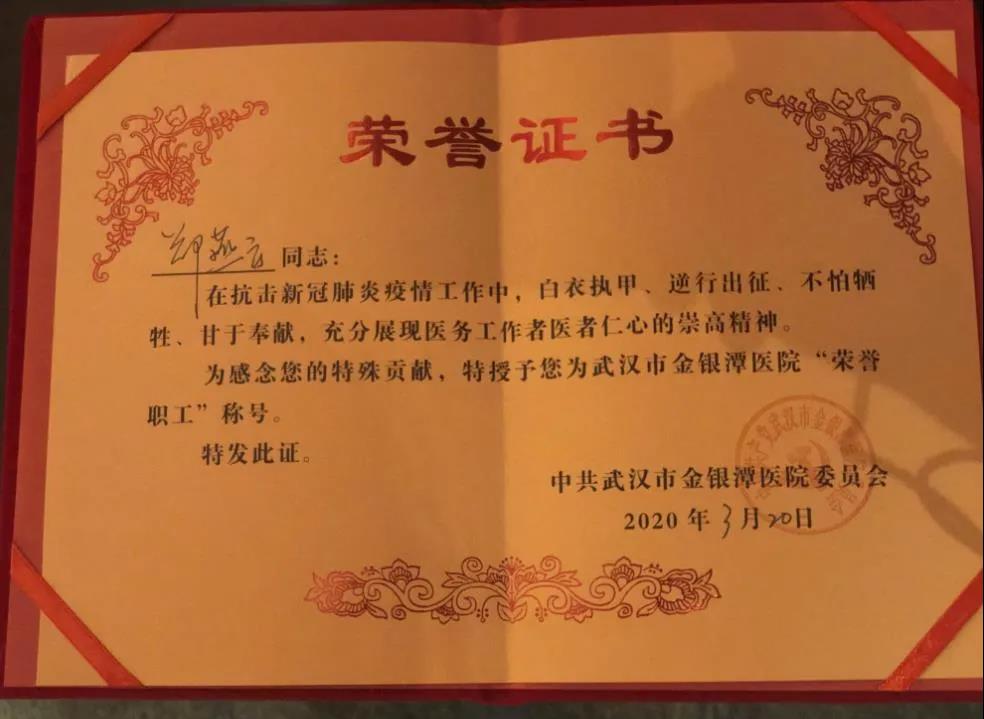 荣誉证书
郑燕云 同志：
在抗击新冠肺炎疫情工作中，白衣执甲、逆行出征、不怕牺
牲、甘于奉献，充分展现医务工作者医者仁心的崇高精神。
为感念您的特殊贡献，特授予您为武汉市金银潭医院“荣誉
职工”称号。
特发此证。
中共武汉市金银潭医院委员会
2020 年 3 月 20 日